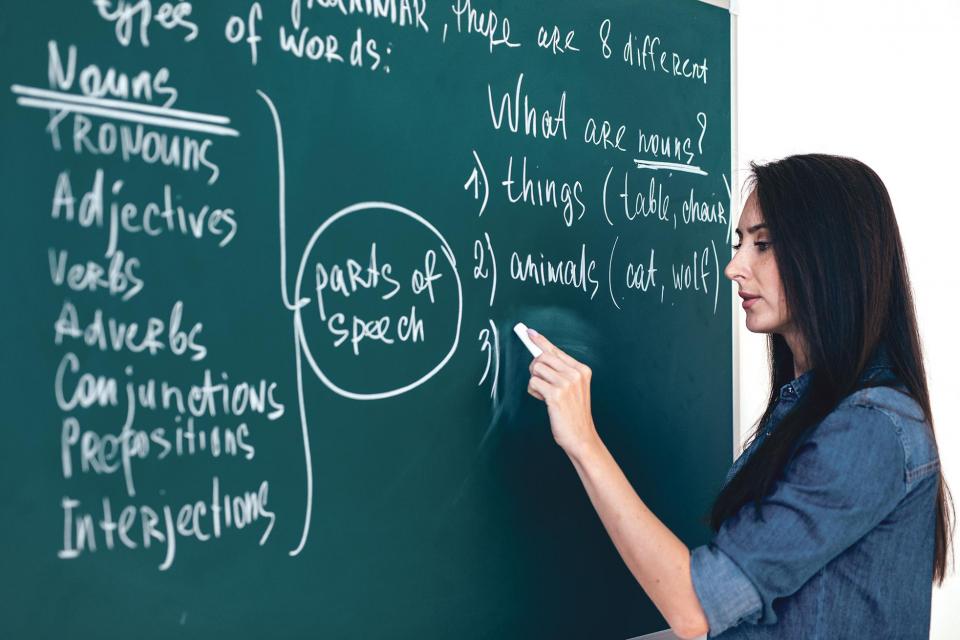 GRAMMAR, there are 8 different
types of words:
Nouns
Pronouns
Adjectives
Verbs
Adverbs
Conjunctions
Prepositions
Interjections
parts of
speech
What are nouns?
1) things (table, chair)
2) animals (cat, wolf)
3)